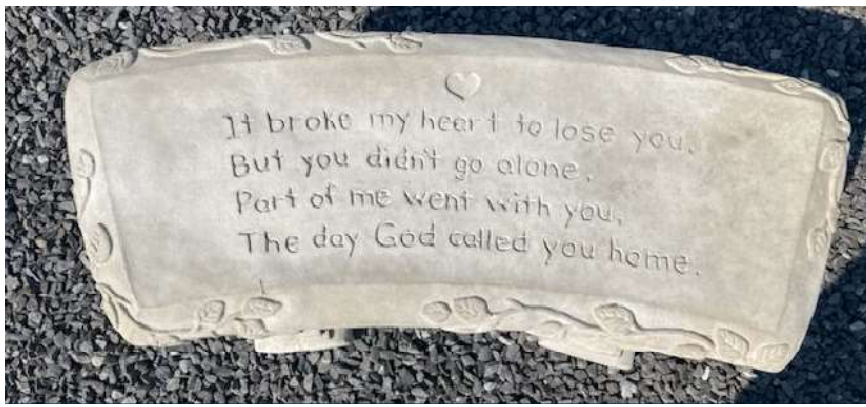 It broke my heart to lose you.
But you didn't go alone.
Part of me went with you,
The day God called you home.